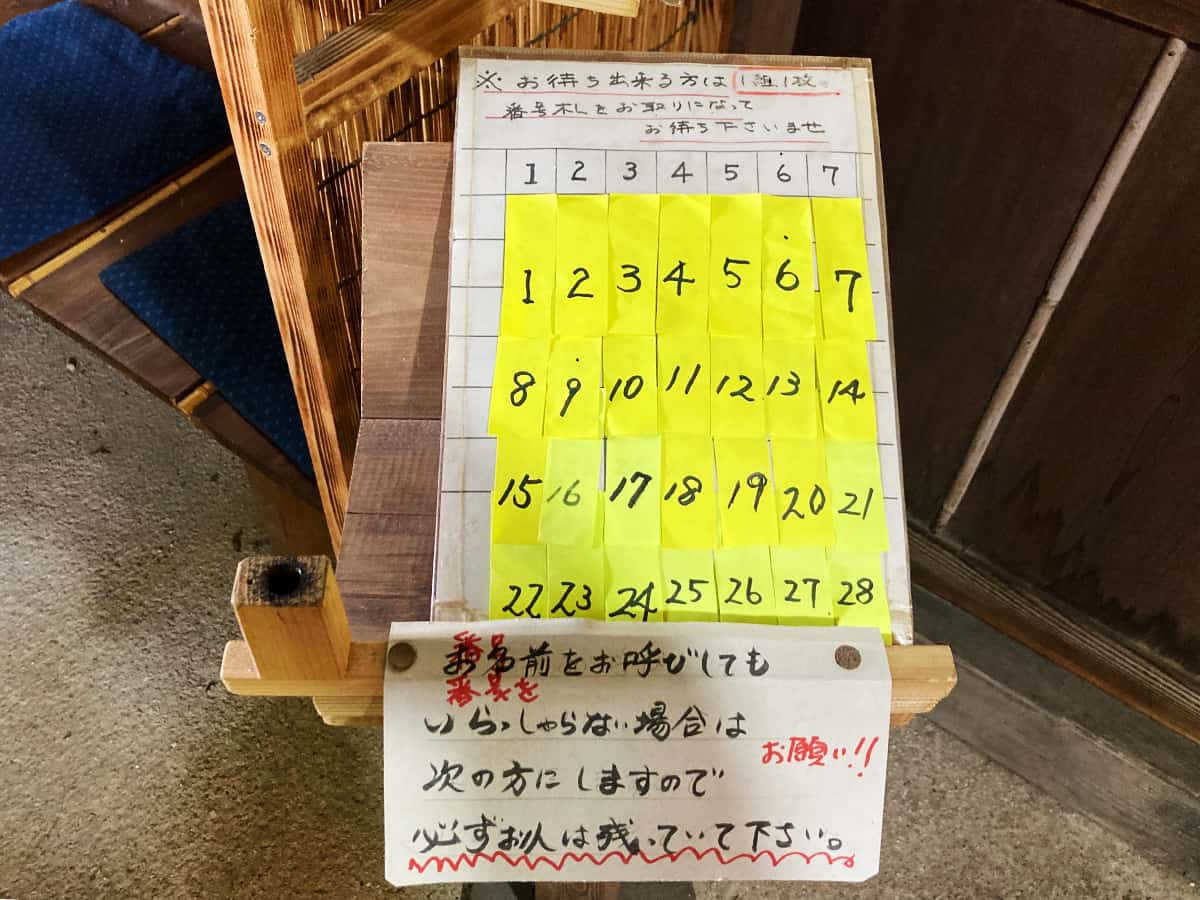 ※ お待ち出来る方は 1組1枚
番号札をお取りになって
お待ち下さいませ
1 2 3 4 5 6 7
1 2 3 4 5 6 7
8 9 10 11 12 13 14
15 16 17 18 19 20 21
22 23 24 25 26 27 28
番号
お名前をお呼びしても
番号を
いらっしゃらない場合は
お願い!!
次の方にしますので
必ずお1人は残っていて下さい。